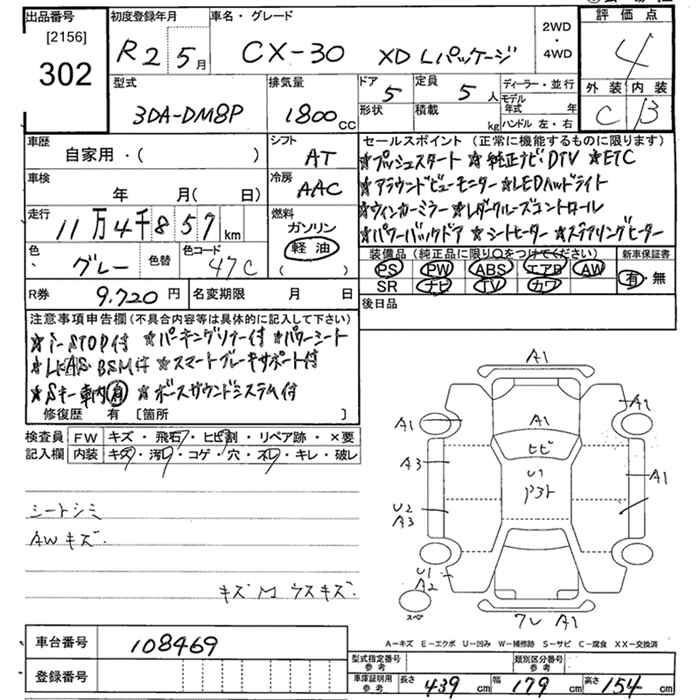 出品番号
[2156]
302
初度登録年月
R2 5月
車名・グレード
CX-30 XD Lパッケージ
2WD
・
4WD
評価点
4
外装 内装
C B
型式
3DA-DM8P
排気量
1800cc
ドア 5
形状
定員 5人
積載 kg
ディーラー・並行
モデル年式 年
ハンドル 左・右
車歴
自家用・( )
シフト
AT
車検
年 月( 日)
冷房
AAC
走行
11万4千857km
燃料
ガソリン
軽油
( )
色
グレー
色替
色コード
47C
R券 9,720円
名変期限 月 日
セールスポイント (正常に機能するものに限ります)
★プッシュスタート ★純正ナビ・DTV ★ETC
★アラウンドビューモニター ★LEDヘッドライト
★ウィンカーミラー ★レダークルーズコントロール
★パワーバックドア ★シートヒーター ★ステアリングヒーター
装備品 (純正品に限り○をつけてください)
PS PW ABS エアB AW
SR ナビ TV カワ
新車保証書
有・無
後日品
注意事項申告欄 (不具合内容等は具体的に記入して下さい)
★i-STOP付 ★パーキングソナー付 ★パワーシート
★LKAS・BSM付 ★スマートブレーキサポート付
★Sキー車内有 ★ボースサウンドシステム付
修復歴 有 [箇所 ]
検査員記入欄
FW キズ・飛石・ヒビ割・リペア跡・×要
内装 キズ・汚レ・コゲ・穴・スレ・キレ・破レ
シートシミ
AWキズ
キズM ウスキズ
A1
A1
A1
A2
ヒビ
A3
U1
A1
U2
A3
U1
A2
スペア
A1
A-キズ E-エクボ U-凹み W-補修跡 S-サビ C-腐食 XX-交換済
車台番号
108469
登録番号
型式指定番号 参考
類別区分番号 参考
車庫証明用 参考
長さ 439cm 幅 179cm 高さ 154cm